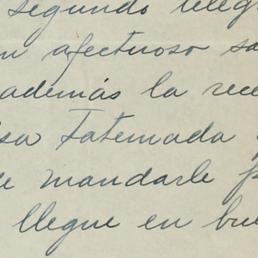 segundo telegr
n afectuoso sa
además la rece
sa Fatemada
e mandarle p
llegue en bue